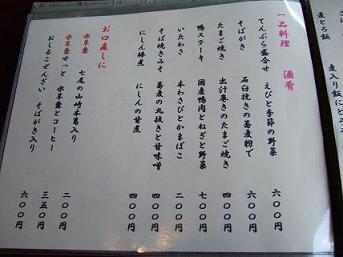 麦とろ飯
麦入り飯にとろ
一品料理 酒肴
てんぷら盛合せ えびと季節の野菜 六〇〇円
そばがき 石臼挽きの蕎麦粉で 六〇〇円
たまご焼き 出汁巻きのたまご焼き 四〇〇円
鴨ステーキ 国産鴨肉とねぎと野菜 七〇〇円
いたわさ 本わさびとかまぼこ 二〇〇円
そば焼きみそ 蕎麦の丸抜きと甘味噌 四〇〇円
にしん棒煮 にしんの甘煮 四〇〇円
お口直しに
水羊羹 七尾の山崎本葛入り 二〇〇円
水羊羹せっと 水羊羹とコーヒー 三五〇円
おしるこぜんざい そばがき入り 六〇〇円